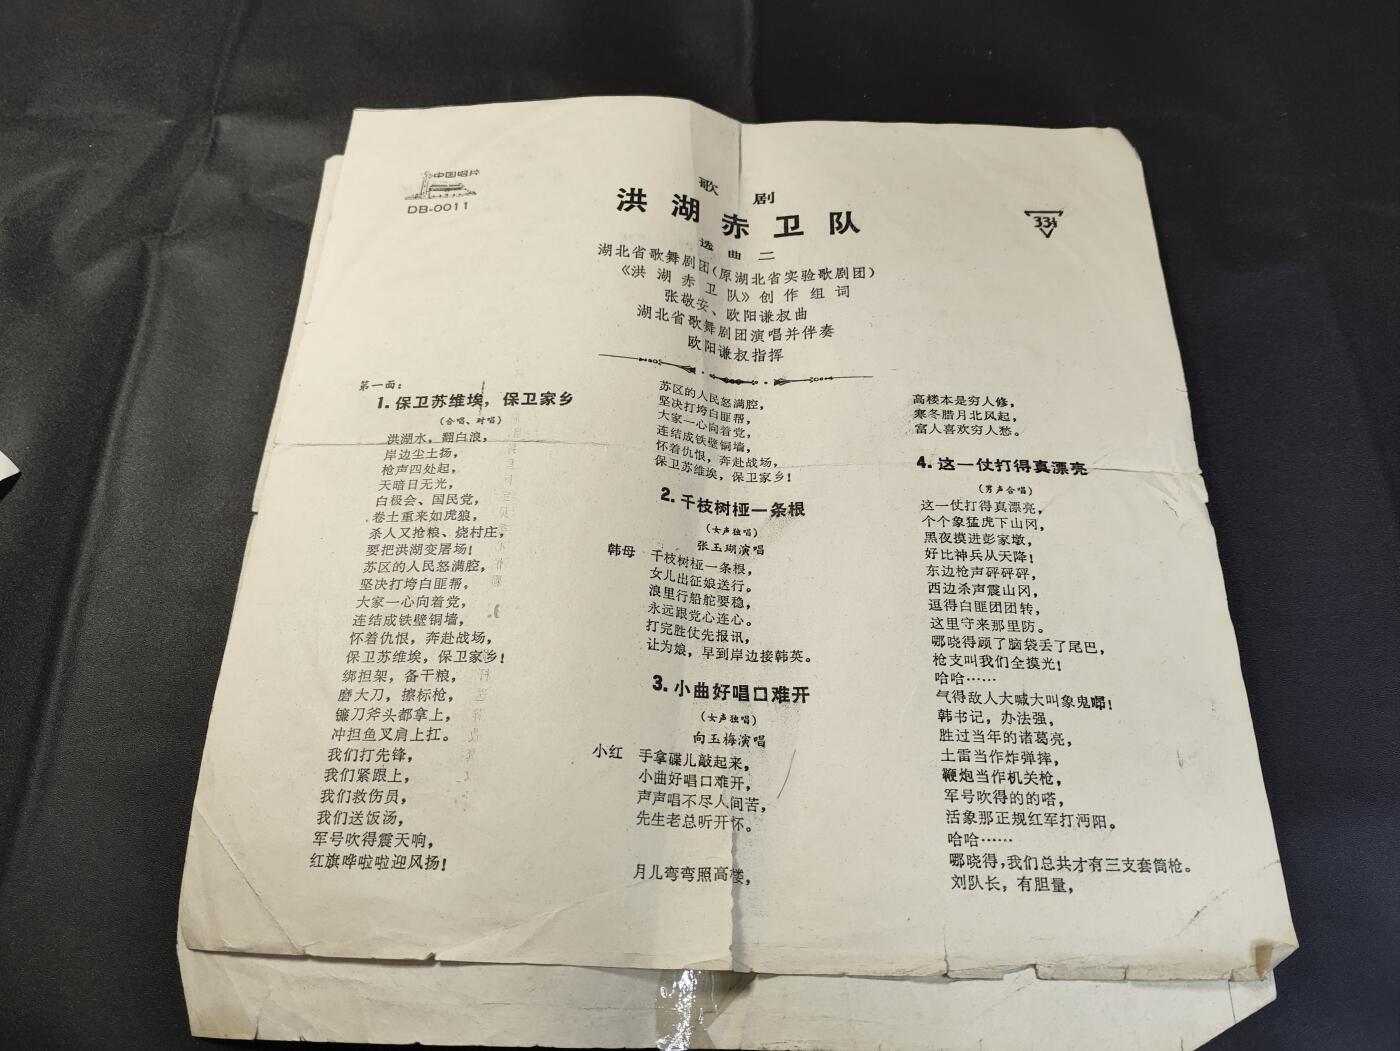 中国唱片
DB-0011
歌剧
洪湖赤卫队
选曲二
33⅓
湖北省歌舞剧团(原湖北省实验歌剧团)
《洪湖赤卫队》创作组词
张敬安、欧阳谦叔曲
湖北省歌舞剧团演唱并伴奏
欧阳谦叔指挥
第一面:
1.保卫苏维埃,保卫家乡
(合唱、对唱)
洪湖水,翻白浪,
岸边尘土扬,
枪声四处起,
天暗日无光,
白极会、国民党,
卷土重来如虎狼,
杀人又抢粮、烧村庄,
要把洪湖变屠场!
苏区的人民怒满腔,
坚决打垮白匪帮。
大家一心向着党,
连结成铁壁铜墙,
怀着仇恨,奔赴战场,
保卫苏维埃,保卫家乡!
绑担架,备干粮,
磨大刀,擦标枪,
镰刀斧头都拿上,
冲担鱼叉肩上扛。
我们打先锋,
我们紧跟上,
我们救伤员,
我们送饭汤,
军号吹得震天响,
红旗哗啦啦迎风扬!
苏区的人民怒满腔,
坚决打垮白匪帮,
大家一心向着党,
连结成铁壁铜墙,
怀着仇恨,奔赴战场,
保卫苏维埃,保卫家乡!
2.千枝树桠一条根
(女声独唱)
张玉瑚演唱
韩母 千枝树桠一条根,
女儿出征娘送行。
浪里行船舵要稳,
永远跟党心连心。
打完胜仗先报讯,
让为娘,早到岸边接韩英。
3.小曲好唱口难开
(女声独唱)
向玉梅演唱
小红 手拿碟儿敲起来,
小曲好唱口难开,
声声唱不尽人间苦,
先生老总听开怀。
月儿弯弯照高楼,
高楼本是穷人修,
寒冬腊月北风起,
富人喜欢穷人愁。
4.这一仗打得真漂亮
(男声合唱)
这一仗打得真漂亮,
个个象猛虎下山冈,
黑夜摸进彭家墩,
好比神兵从天降!
东边枪声砰砰砰,
西边杀声震山冈,
逗得白匪团团转,
这里守来那里防。
哪晓得顾了脑袋丢了尾巴,
枪支叫我们全摸光!
哈哈……
气得敌人大喊大叫象鬼嚎!
韩书记,办法强,
胜过当年的诸葛亮,
土雷当作炸弹摔,
鞭炮当作机关枪,
军号吹得的的嗒,
活象那正规红军打沔阳。
哈哈……
哪晓得,我们总共才有三支套筒枪。
刘队长,有胆量,